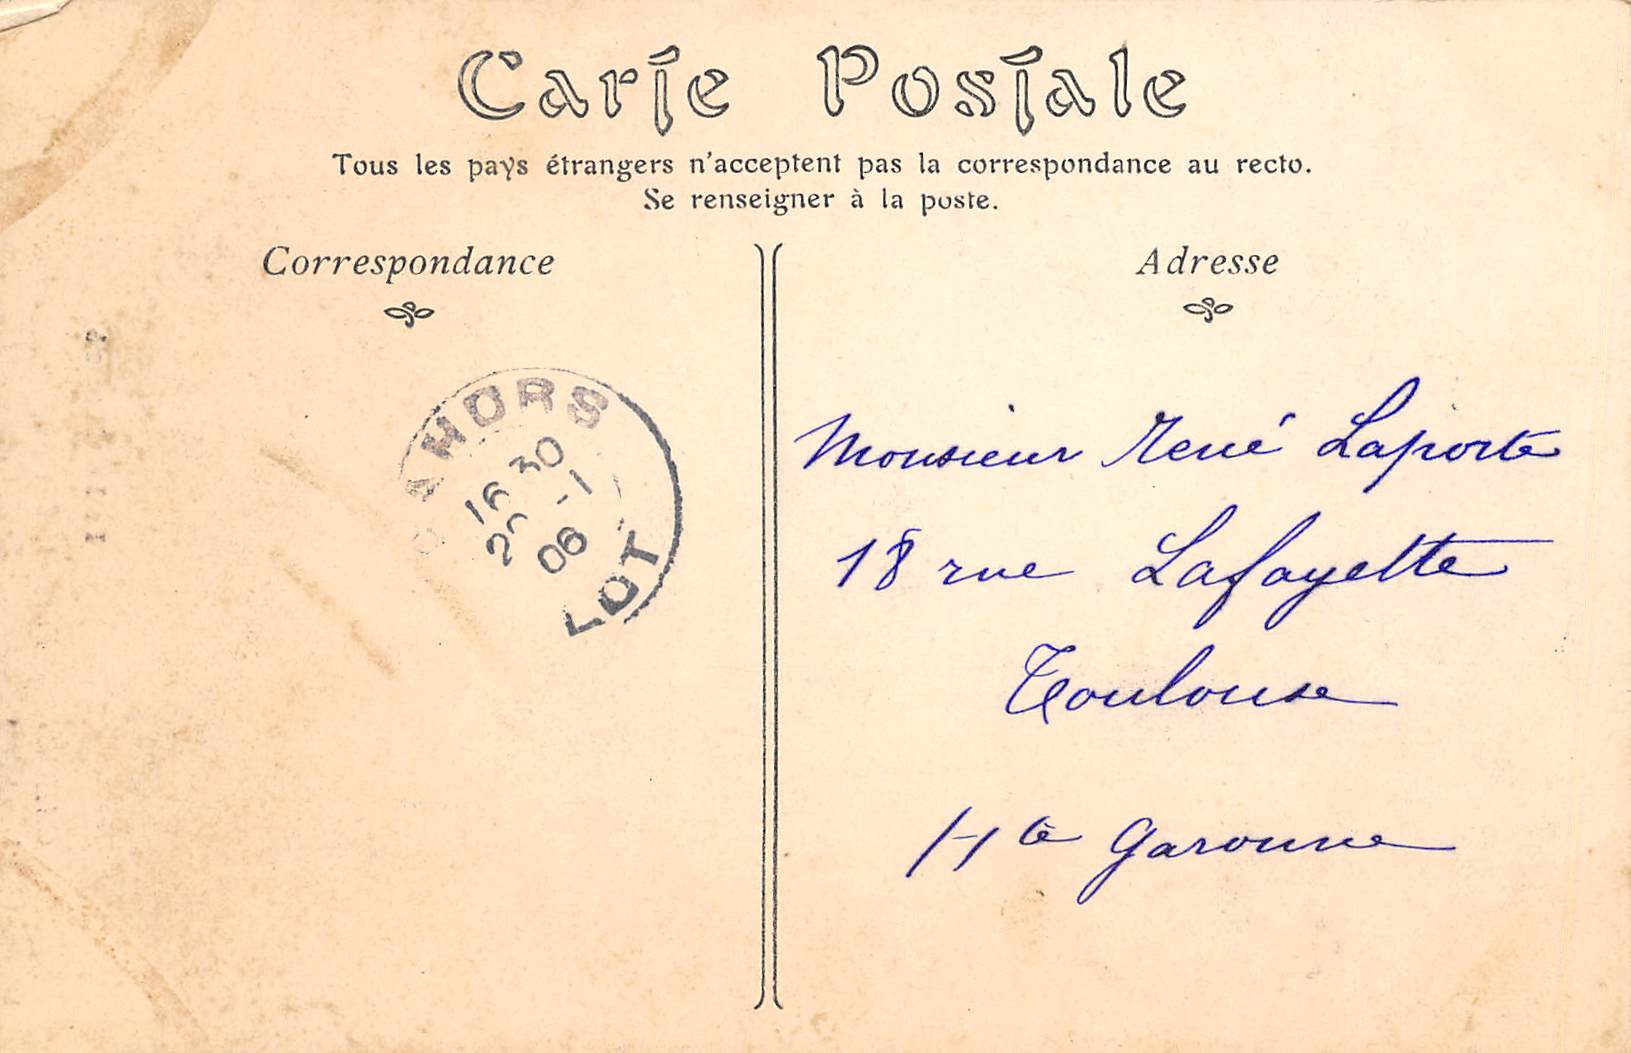 Carte Postale
Tous les pays étrangers n'acceptent pas la correspondance au recto.
Se renseigner à la poste.
Correspondance
Adresse
CAHORS
16 30
-1
06
LOT
Monsieur René Laporte
18 rue Lafayette
Toulouse
Hte Garonne